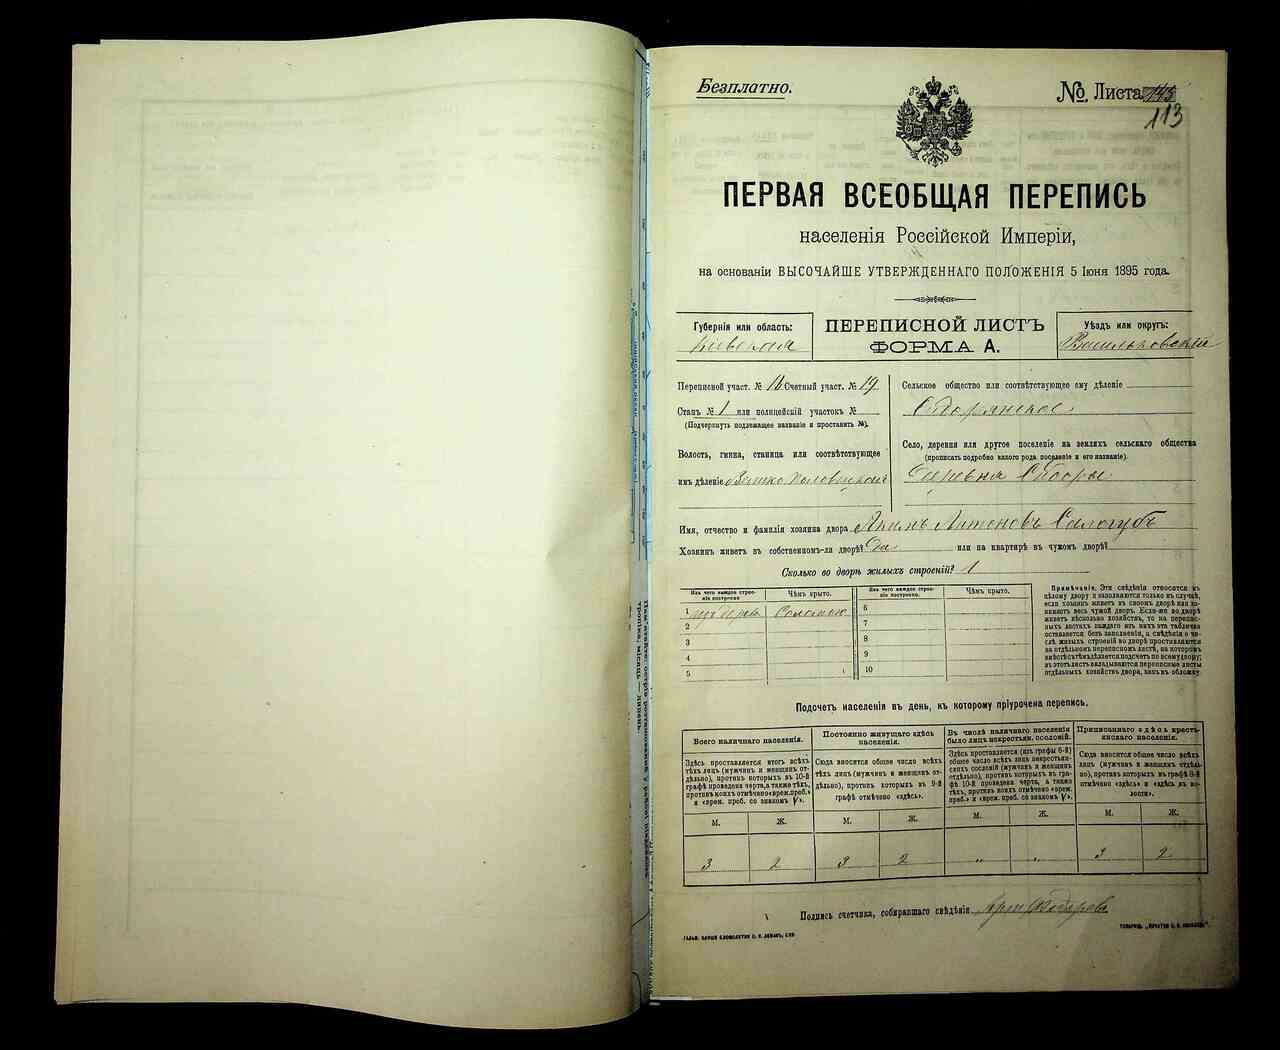 Безплатно.
№ Листа 145
113
ПЕРВАЯ ВСЕОБЩАЯ ПЕРЕПИСЬ
населенія Россійской Имперіи,
на основаніи ВЫСОЧАЙШЕ УТВЕРЖДЕННАГО ПОЛОЖЕНІЯ 5 Іюня 1895 года.
Губернія или область:
Кіевская
ПЕРЕПИСНОЙ ЛИСТЪ
ФОРМА А.
Уѣздъ или округъ:
Васильковскій
Переписной участ. № 16 Счетный участ. № 19
Станъ № 1 или полицейскій участокъ №
(Подчеркнуть подлежащее названіе и проставить №).
Волость, гмина, станица или соотвѣтствующее
имъ дѣленіе Велико-Половецкая
Сельское общество или соотвѣтствующее ему дѣленіе
Село, деревня или другое поселеніе на земляхъ сельскаго общества
(прописать подробно какого рода поселеніе и его названіе).
Деревня
Имя, отчество и фамилія хозяина двора Якимъ Антоновъ Сологубъ
Хозяинъ живетъ въ собственномъ-ли дворѣ? Да или на квартирѣ въ чужомъ дворѣ?
Сколько во дворѣ жилыхъ строеній? 1
Изъ чего каждое строеніе построено
Чѣмъ крыто.
Изъ чего каждое строеніе построено
Чѣмъ крыто.
1 Соломою 6
2 7
3 8
4 9
5 10
Примѣчаніе. Эти свѣдѣнія относятся къ
цѣлому двору и заполняются только въ случаѣ,
если хозяинъ живетъ въ своемъ дворѣ или занимаетъ весь чужой дворъ. Если-же во дворѣ
живетъ нѣсколько хозяйствъ, то на переписныхъ листахъ каждаго изъ нихъ эта табличка
оставляется безъ заполненія, а свѣдѣнія о числѣ жилыхъ строеній во дворѣ проставляются
на отдѣльномъ переписномъ листѣ, на которомъ
вмѣстѣ съ тѣмъ дѣлается подсчетъ по всему двору;
въ этотъ листъ вкладываются переписные листы
отдѣльныхъ хозяйствъ двора, какъ въ обложку.
Подсчетъ населенія въ день, къ которому пріурочена перепись.
Всего наличнаго населенія.
Здѣсь проставляется итогъ всѣхъ
тѣхъ лицъ (мужчинъ и женщинъ отдѣльно), противъ которыхъ въ 10-й
графѣ проведена черта, а также тѣхъ,
противъ коихъ отмѣчено «врем. преб.»
и «врем. преб. со знакомъ V».
Постоянно живущаго здѣсь
населенія.
Сюда вносится общее число всѣхъ
тѣхъ лицъ (мужчинъ и женщинъ отдѣльно), противъ которыхъ въ 9-й
графѣ отмѣчено «здѣсь».
Въ числѣ наличнаго населенія
было лицъ некрестьян. сословій.
Здѣсь проставляется (изъ графы 6-й)
общее число всѣхъ лицъ некрестьянскихъ сословій (мужчинъ и женщинъ
отдѣльно), противъ которыхъ въ графѣ 10-й проведена черта, а также
тѣхъ, противъ коихъ отмѣчено «врем.
преб.» и «врем. преб. со знакомъ V».
Приписаннаго здѣсь крестьянскаго населенія.
Сюда вносится общее число всѣхъ
лицъ (мужчинъ и женщинъ отдѣльно), противъ которыхъ въ графѣ 8-й
отмѣчено «здѣсь» и «здѣсь въ волости».
М. Ж. М. Ж. М. Ж. М. Ж.
3 2 3 2 „ „ 3 2
Подпись счетчика, собиравшаго свѣдѣнія